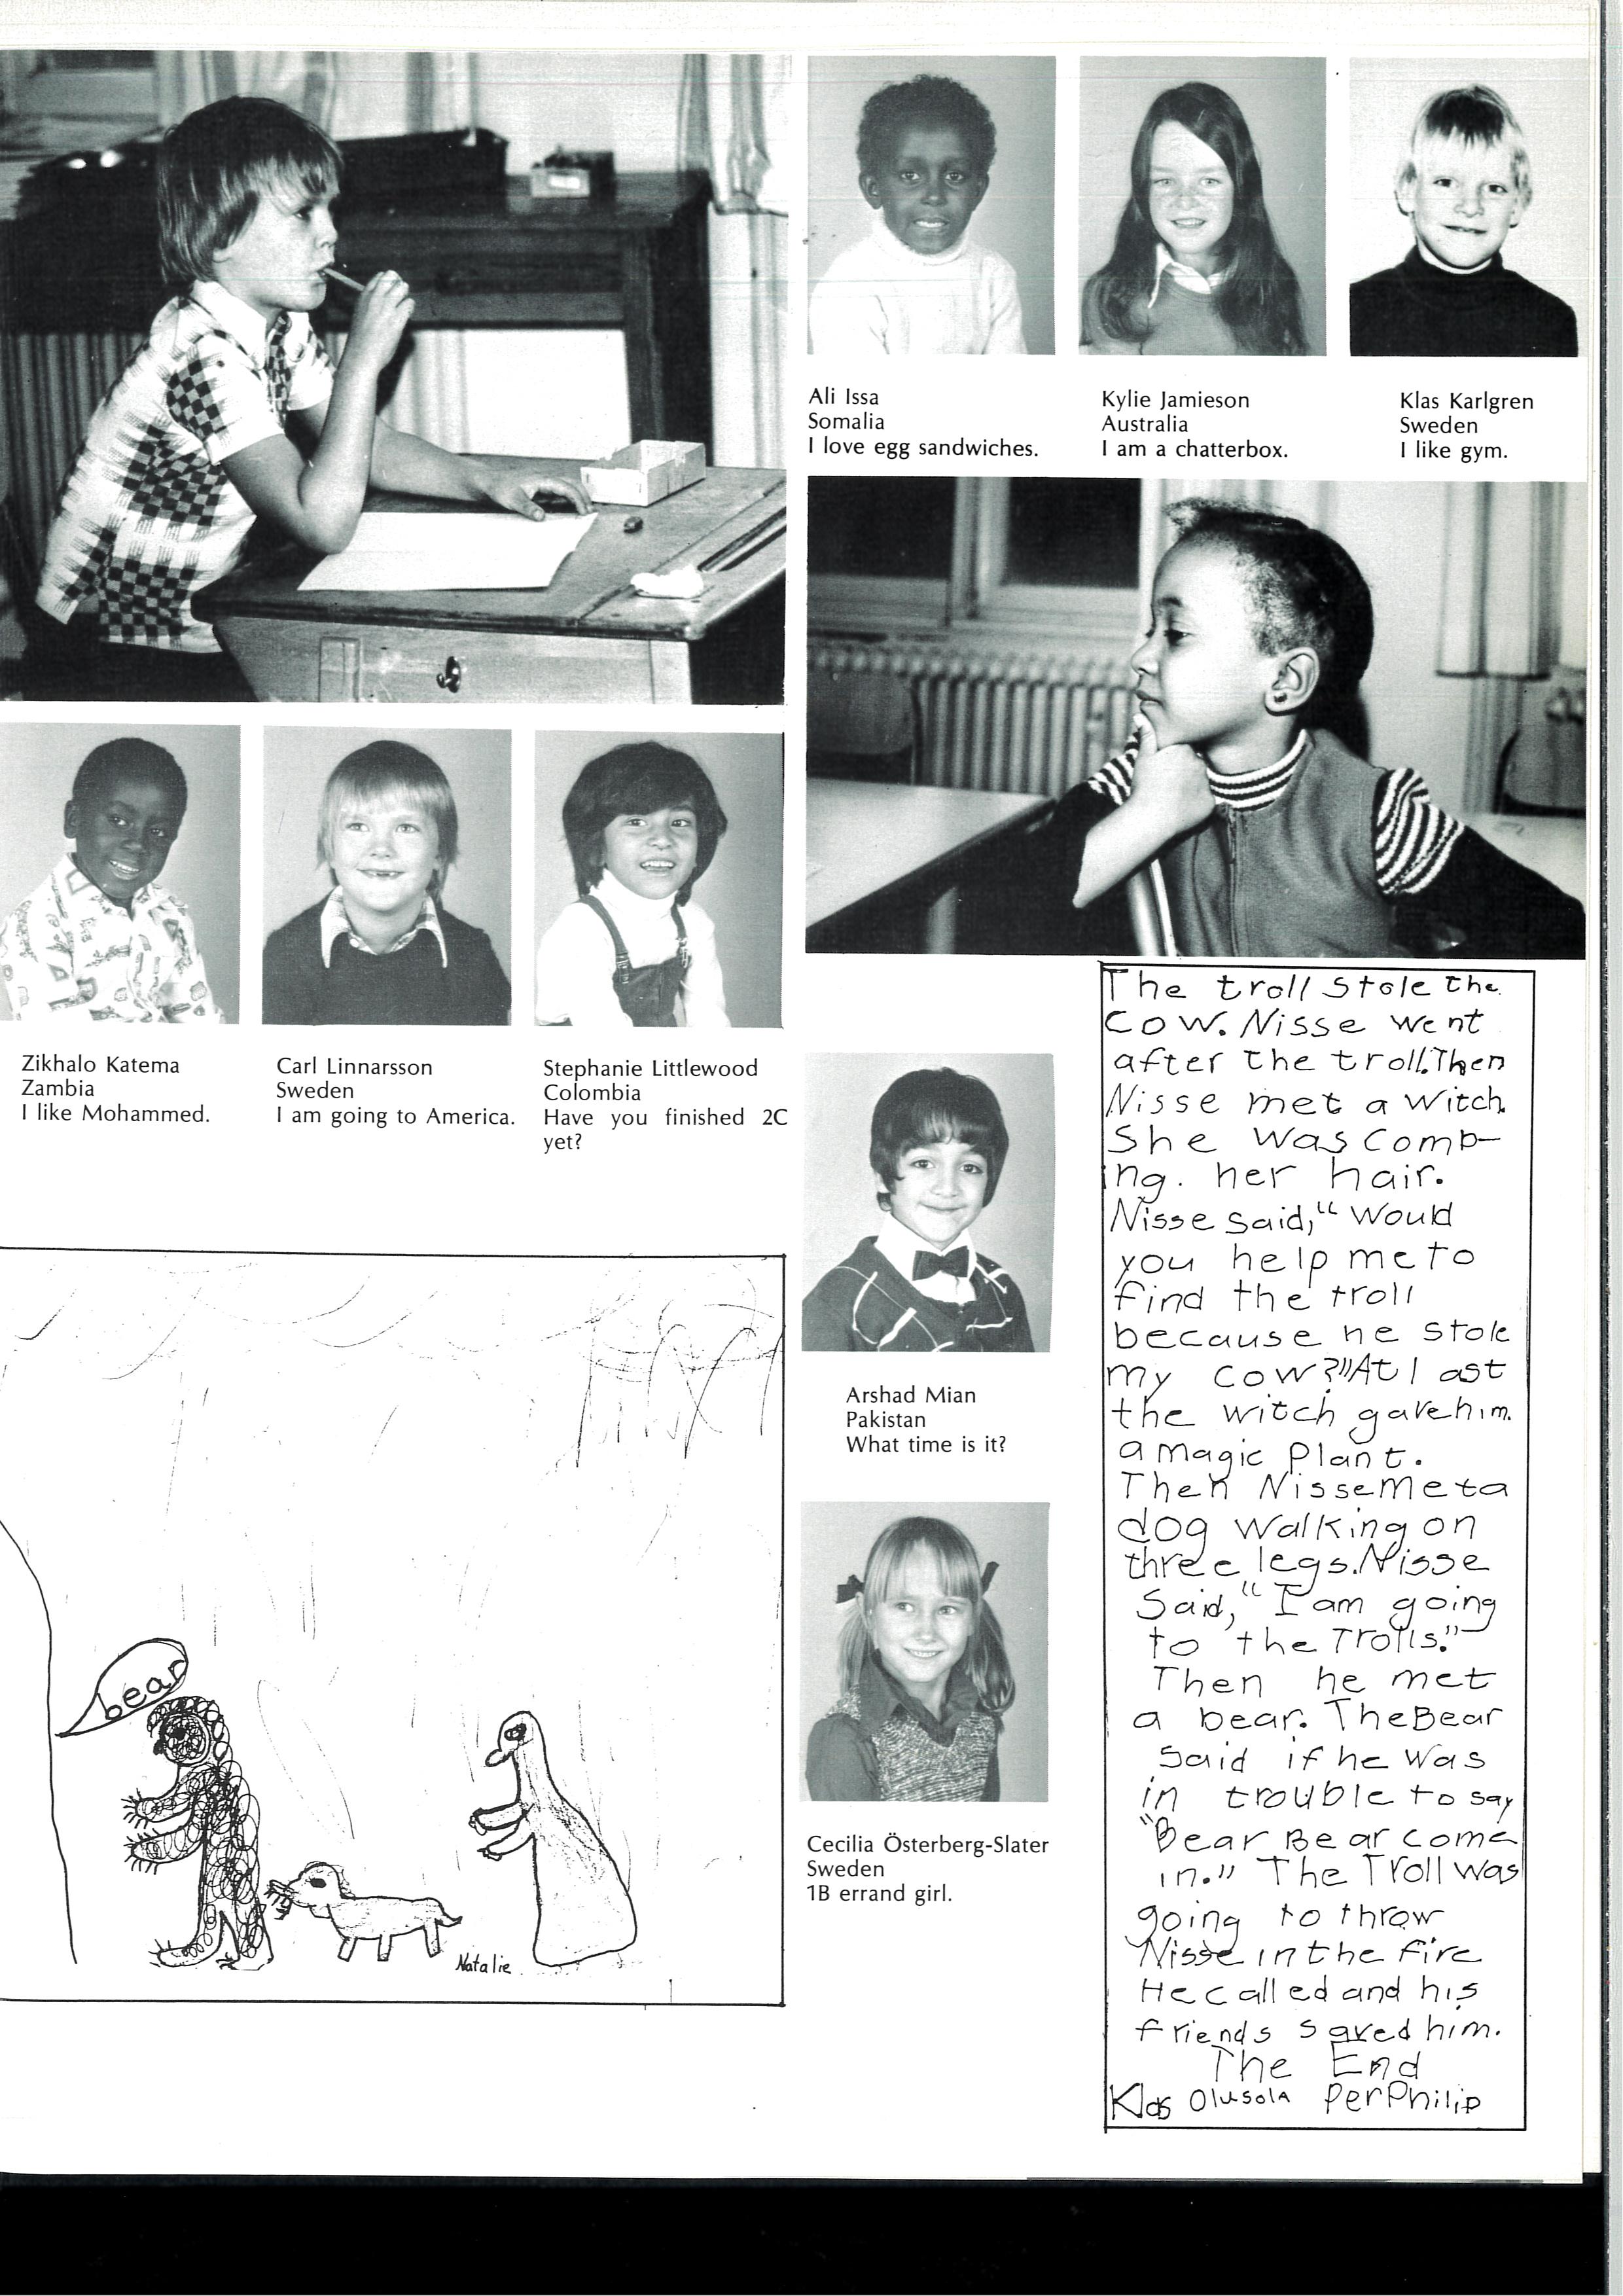 Ali Issa
Somalia
I love egg sandwiches.
Kylie Jamieson
Australia
I am a chatterbox.
Klas Karlgren
Sweden
I like gym.
Zikhalo Katema
Zambia
I like Mohammed.
Carl Linnarsson
Sweden
I am going to America.
Stephanie Littlewood
Colombia
Have you finished 2C
yet?
Arshad Mian
Pakistan
What time is it?
Cecilia Österberg-Slater
Sweden
1B errand girl.
bear
Natalie
The troll stole the
cow. Nisse went
after the troll. Then
Nisse met a witch.
She was comb-
ing. her hair.
Nisse said, "Would
you help me to
find the troll
because he stole
my cow?" At last
the witch gave him.
a magic plant.
Then Nisse met a
dog walking on
three legs. Nisse
Said, "I am going
to the Trolls."
Then he met
a bear. The Bear
said if he was
in trouble to say
"Bear Bear come
in." The Troll was
going to throw
Nisse in the fire
He called and his
friends saved him.
The End
Klas Olusola Per Philip